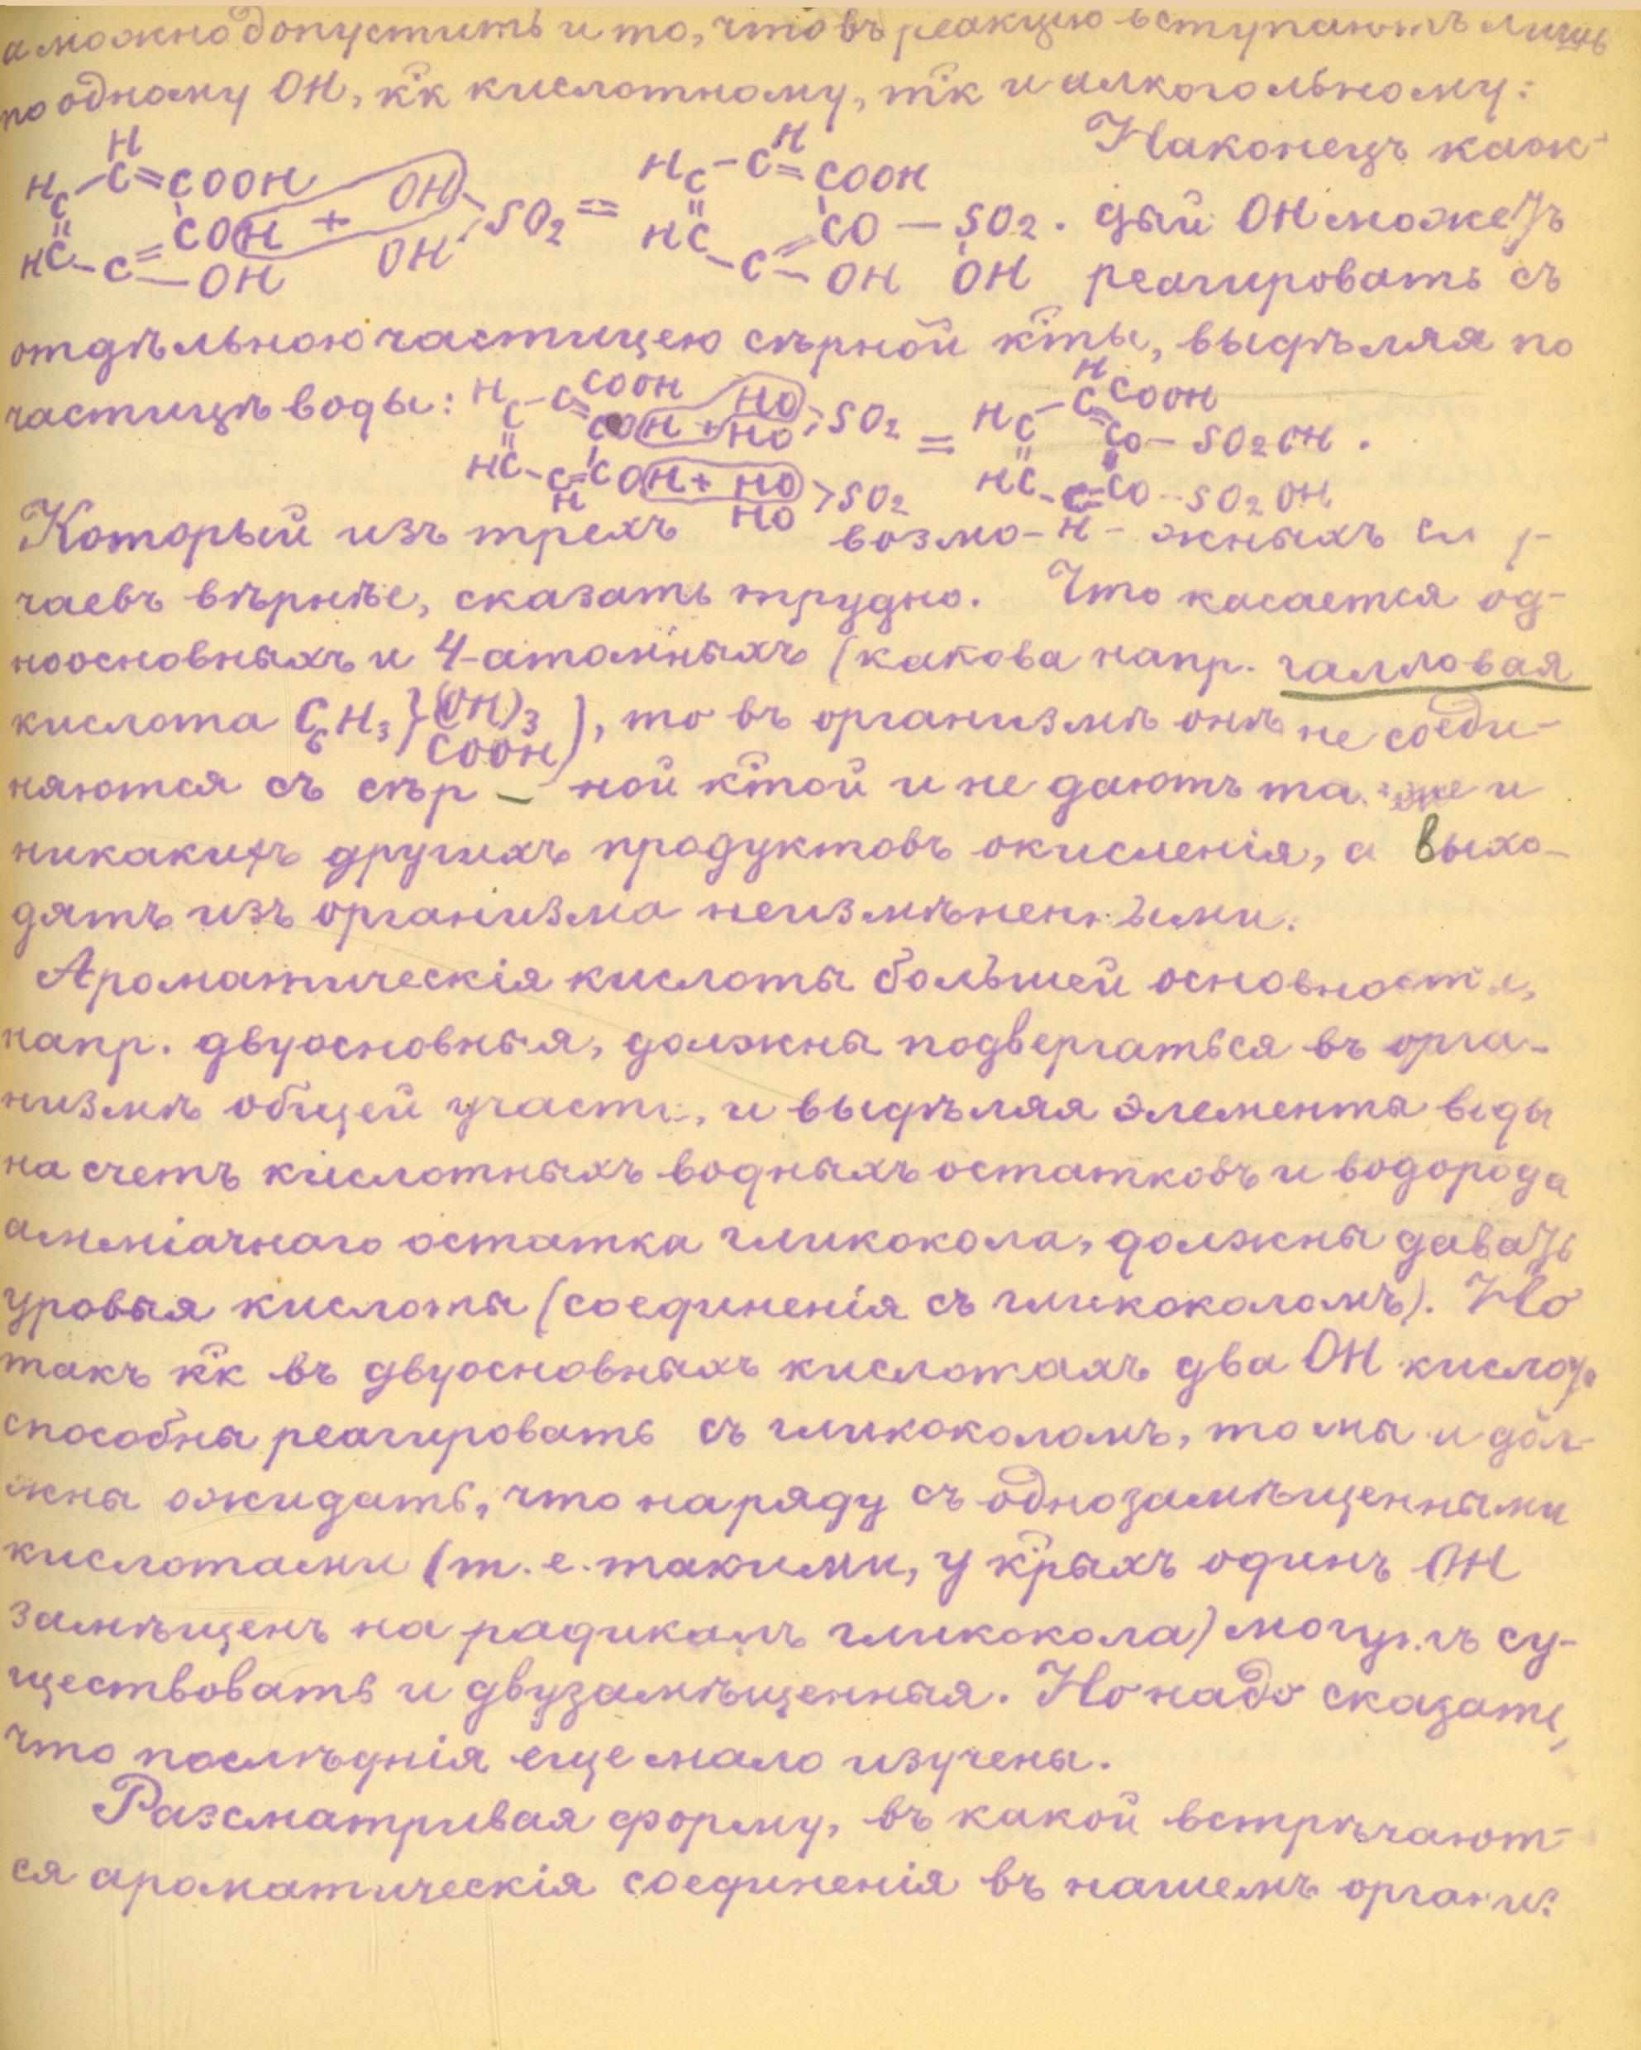 а можно допустить и то, что въ реакцію вступаютъ лишь
по одному ОН, к̈к кислотному, т̈к и алкогольному:
Наконецъ каж-
H
H C – C = COOH OH H C – C = COOH
COH + SO2 = CO – SO2 . дый ОН можетъ
HC – C – OH OH HC – C – OH OH реагировать съ
отдѣльною частицею сѣрной к̈ты, выдѣляя по
частицѣ воды: H C – C COOH HO SO2 = H C – C COOH
COH + HO CO – SO2OH .
HC – C COH + HO > SO2 HC – C = CO – SO2OH
H HO H
Который изъ трехъ возмо- жныхъ слу-
чаевъ вѣрнѣе, сказать трудно. Что касается од-
ноосновныхъ и 4-атомныхъ (какова напр. галловая
кислота C6H3 } (OH)3 COOH ), то въ организмѣ онѣ не соеди-
няются съ сѣр – ной к̈той и не даютъ также и
никакихъ другихъ продуктовъ окисленія, а выхо-
дятъ изъ организма неизмѣненными.
Ароматическія кислоты большей основности,
напр. двуосновныя, должны подвергаться въ орга-
низмѣ общей участи, и выдѣляя элементы воды
на счетъ кислотныхъ водныхъ остатковъ и водорода
амміачнаго остатка гликокола, должны давать
уровыя кислоты (соединенія съ гликоколомъ). Но
такъ к̈к въ двуосновныхъ кислотахъ два ОН кислот.
способны реагировать съ гликоколомъ, то мы и дол-
жны ожидать, что на ряду съ однозамѣщенными
кислотами (т. е. такими, у к̈рыхъ одинъ ОН
замѣщенъ на радикалъ гликокола) могутъ су-
ществовать и двузамѣщенныя. Но надо сказать,
что послѣднія еще мало изучены.
Разсматривая форму, въ какой встрѣчают-
ся ароматическія соединенія въ нашемъ органи-